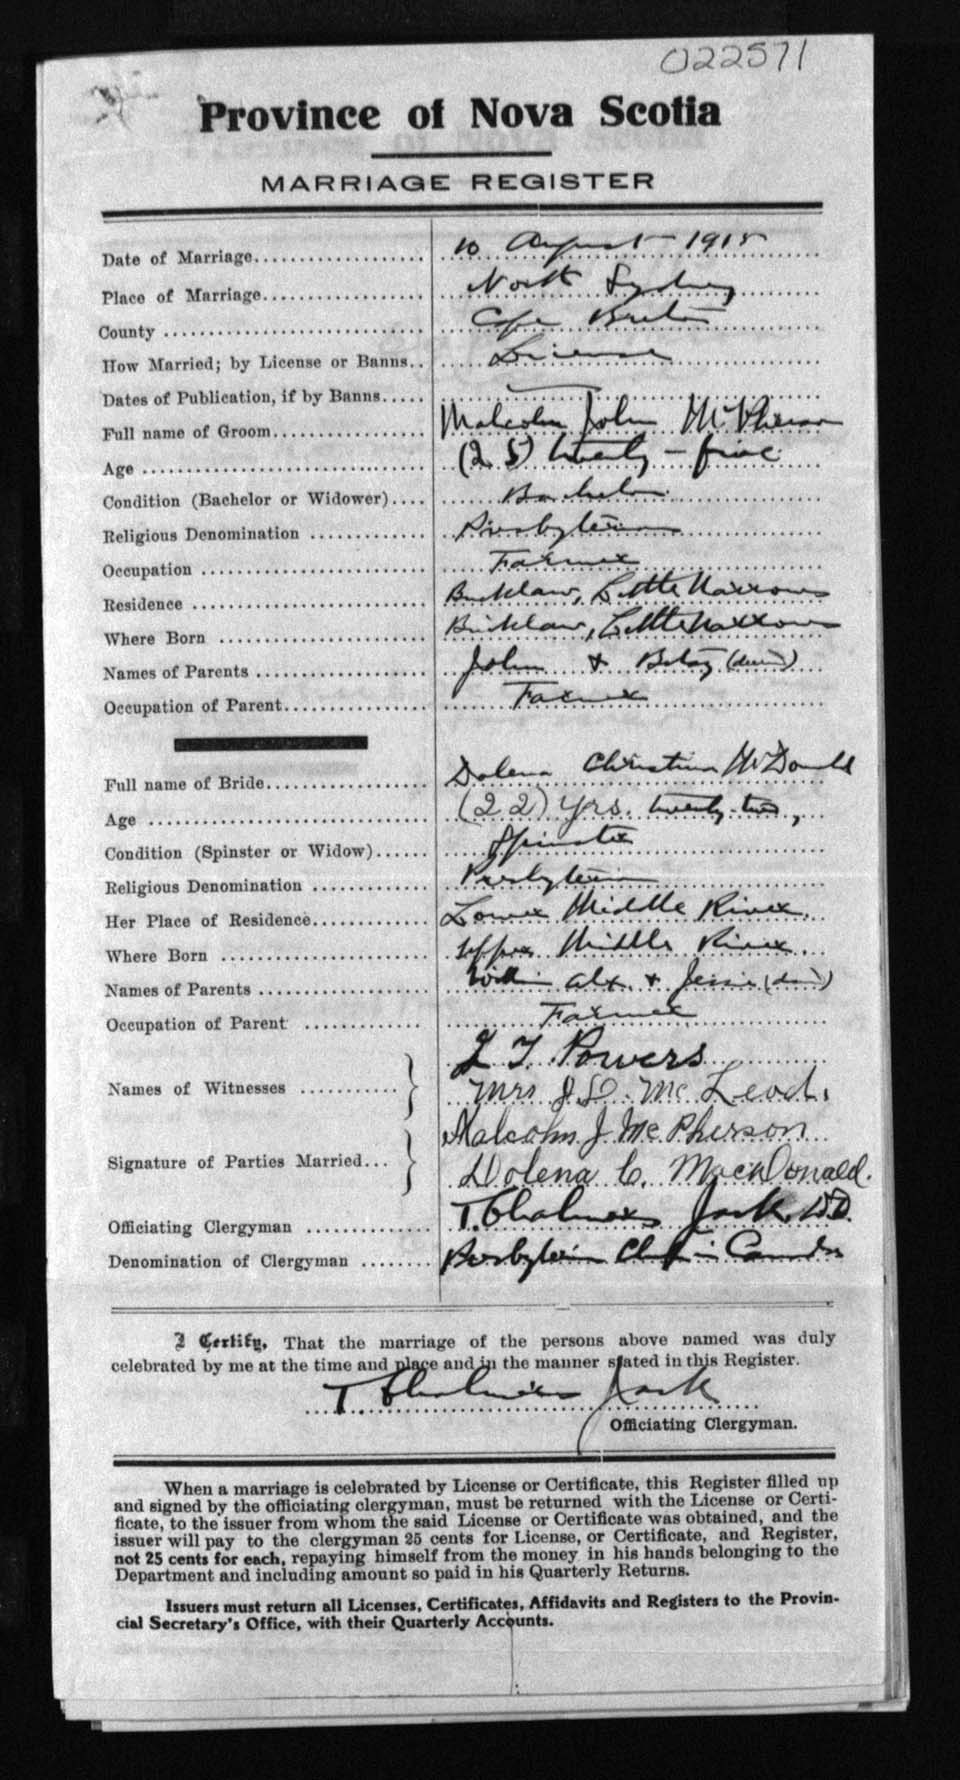 022571
Province of Nova Scotia
MARRIAGE REGISTER
Date of Marriage 10 August 1915
Place of Marriage North Sydney
County Cape Breton
How Married; by License or Banns License
Dates of Publication, if by Banns
Full name of Groom Malcolm John McPherson
Age (25) twenty-five
Condition (Bachelor or Widower) Bachelor
Religious Denomination Presbyterian
Occupation Farmer
Residence Bucklaw, Little Narrows
Where Born Bucklaw, Little Narrows
Names of Parents John & Betsy
Occupation of Parent Farmer
Full name of Bride Dolena Christina McDonald
Age (22) yrs. twenty-two,
Condition (Spinster or Widow) Spinster
Religious Denomination Presbyterian
Her Place of Residence Lower Middle River.
Where Born Upper Middle River.
Names of Parents Alx. & Jessie
Occupation of Parent Farmer
Names of Witnesses L T. Powers
Mrs J.D. McLeod.
Signature of Parties Married Malcolm J McPherson
Dolena C. MacDonald.
Officiating Clergyman T. Chalmers Jack, D.D.
Denomination of Clergyman Presbyterian Church in Canada
I Certify, That the marriage of the persons above named was duly
celebrated by me at the time and place and in the manner stated in this Register.
T. Chalmers Jack
Officiating Clergyman.
When a marriage is celebrated by License or Certificate, this Register filled up
and signed by the officiating clergyman, must be returned with the License or Certi-
ficate, to the issuer from whom the said License or Certificate was obtained, and the
issuer will pay to the clergyman 25 cents for License, or Certificate, and Register,
not 25 cents for each, repaying himself from the money in his hands belonging to the
Department and including amount so paid in his Quarterly Returns.
Issuers must return all Licenses, Certificates, Affidavits and Registers to the Provin-
cial Secretary's Office, with their Quarterly Accounts.